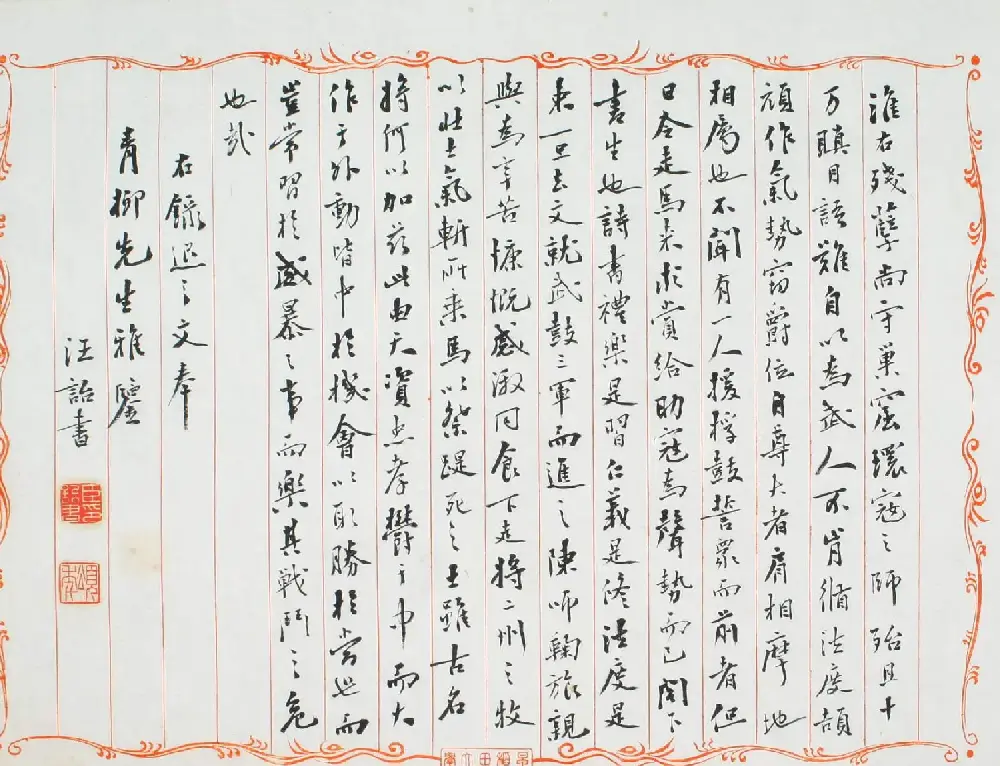 淮右殘孽尚守巢窟環寇之師殆且十
万瞋目語難自以為武人不肯循法度頡
頏作氣勢竊爵位自尊大者肩相摩地
相屬也不聞有一人援桴鼓誓眾而前者但
日令走馬來求賞給助寇為聲勢而已閣下
書生也詩書禮樂是習仁義是修法度是
束一旦去文就武鼓三軍而進之陳師鞠旅親
與為辛苦慷慨感激同食下走將二州之牧
以壯士氣斬所乘馬以祭踶死之士雖古名
將何以加茲此由天資忠孝鬱于中而大
作于外動皆中於機會以取勝於當世而
豈常習於威暴之事而樂其戰鬥之危
也哉
右錄退之文奉
青柳先生雅鑒
汪詒書
頌年